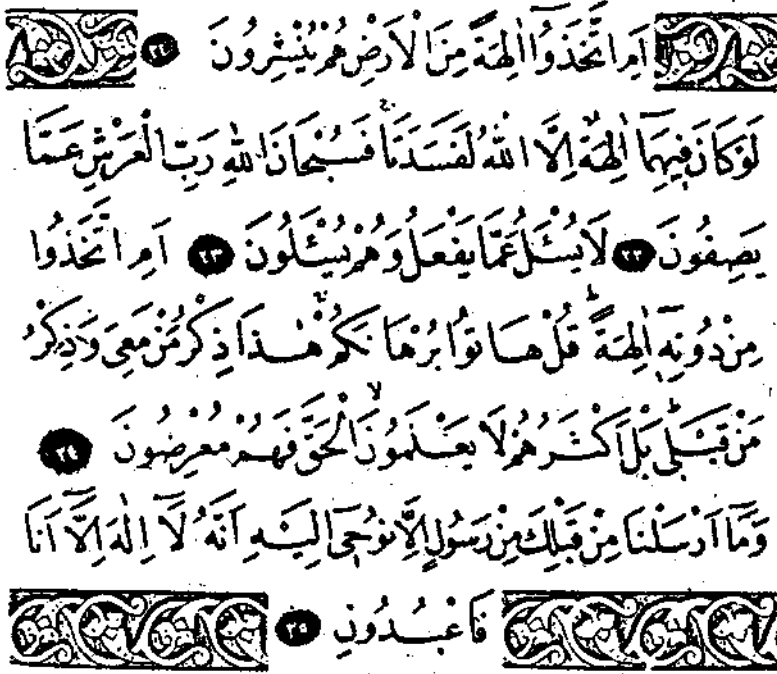 اَمِ اتَّخَذُوٓا اٰلِهَةً مِنَ الْاَرْضِ هُمْ يُنْشِرُونَ ٢١
لَوْ كَانَ فِيهِمَٓا اٰلِهَةٌ اِلَّا اللّٰهُ لَفَسَدَتَاۚ فَسُبْحَانَ اللّٰهِ رَبِّ الْعَرْشِ عَمَّا
يَصِفُونَ ٢٢ لَا يُسْـَٔلُ عَمَّا يَفْعَلُ وَهُمْ يُسْـَٔلُونَ ٢٣ اَمِ اتَّخَذُوا
مِنْ دُونِهٖٓ اٰلِهَةًۜ قُلْ هَاتُوا بُرْهَانَكُمْۚ هٰذَا ذِكْرُ مَنْ مَعِيَ وَذِكْرُ
مَنْ قَبْلٖيۜ بَلْ اَكْثَرُهُمْ لَا يَعْلَمُونَۙ الْحَقَّ فَهُمْ مُعْرِضُونَ ٢٤
وَمَٓا اَرْسَلْنَا مِنْ قَبْلِكَ مِنْ رَسُولٍ اِلَّا نُوحٖٓي اِلَيْهِ اَنَّهُ لَٓا اِلٰهَ اِلَّٓا اَنَا
فَاعْبُدُونِ ٢٥